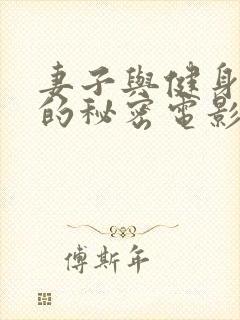 妻子與健身
的秘密電影
傅斯年